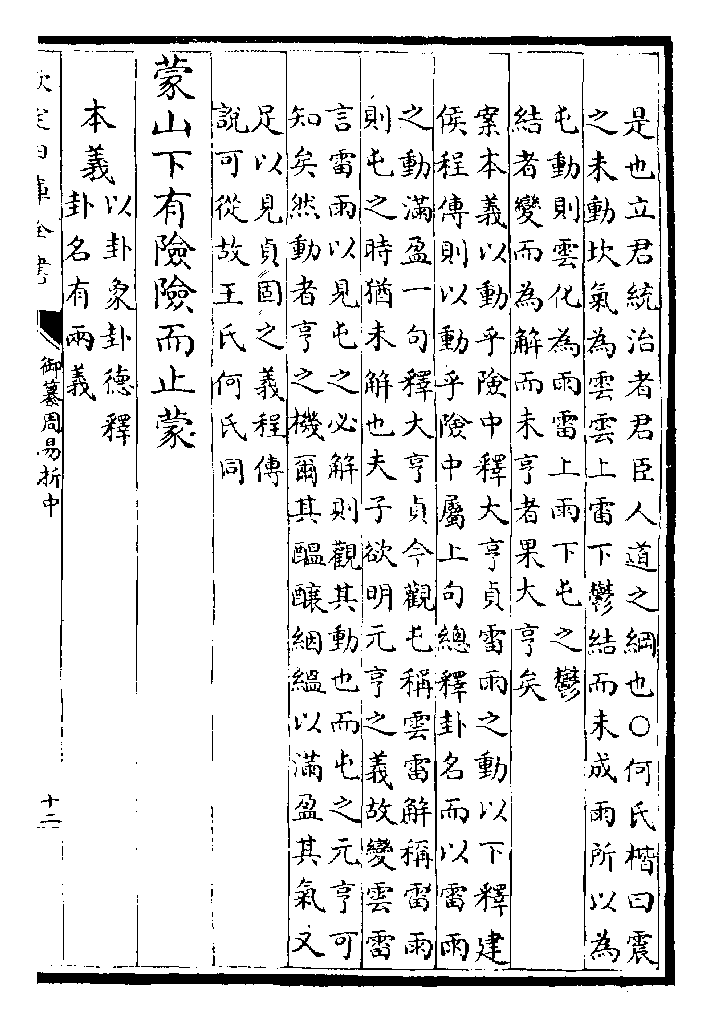 是也立君統治者君臣人道之綱也○何氏楷曰震
之未動坎氣為雲雲上雷下鬱結而未成雨所以為
屯動則雲化為雨雷上雨下屯之鬱
結者變而為解而未亨者果大亨矣
案本義以動乎險中釋大亨貞雷雨之動以下釋建
侯程傳則以動乎險中屬上句總釋卦名而以雷雨
之動滿盈一句釋大亨貞今觀屯稱雲雷解稱雷雨
則屯之時猶未解也夫子欲明元亨之義故變雲雷
言雷雨以見屯之必解則觀其動也而屯之元亨可
知矣然動者亨之機爾其醞釀絪縕以滿盈其氣又
足以見貞固之義程傳
說可從故王氏何氏同
蒙山下有險險而止蒙
本義以卦象卦德釋
卦名有兩義
欽定四庫全書
御纂周易折中
十二